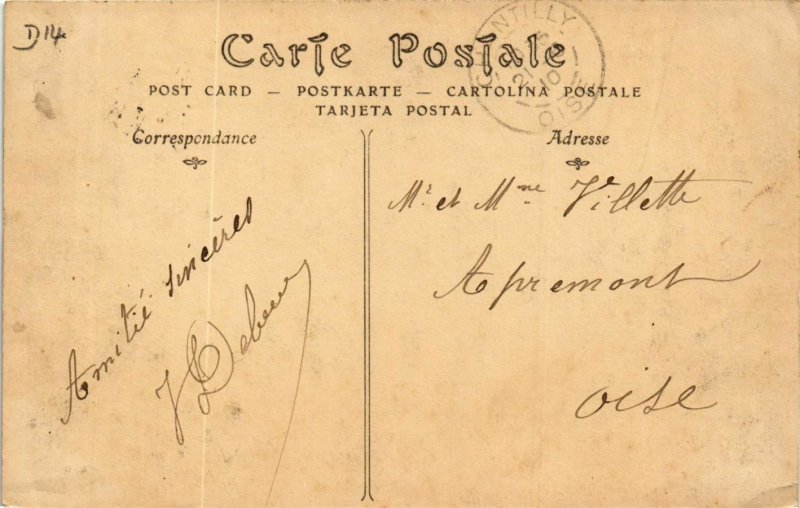 D14
Carte Postale
POST CARD — POSTKARTE — CARTOLINA POSTALE
TARJETA POSTAL
CHANTILLY
OISE
Correspondance
Adresse
Amitié sincères
Mr et Mme Villette
Apremont
oise